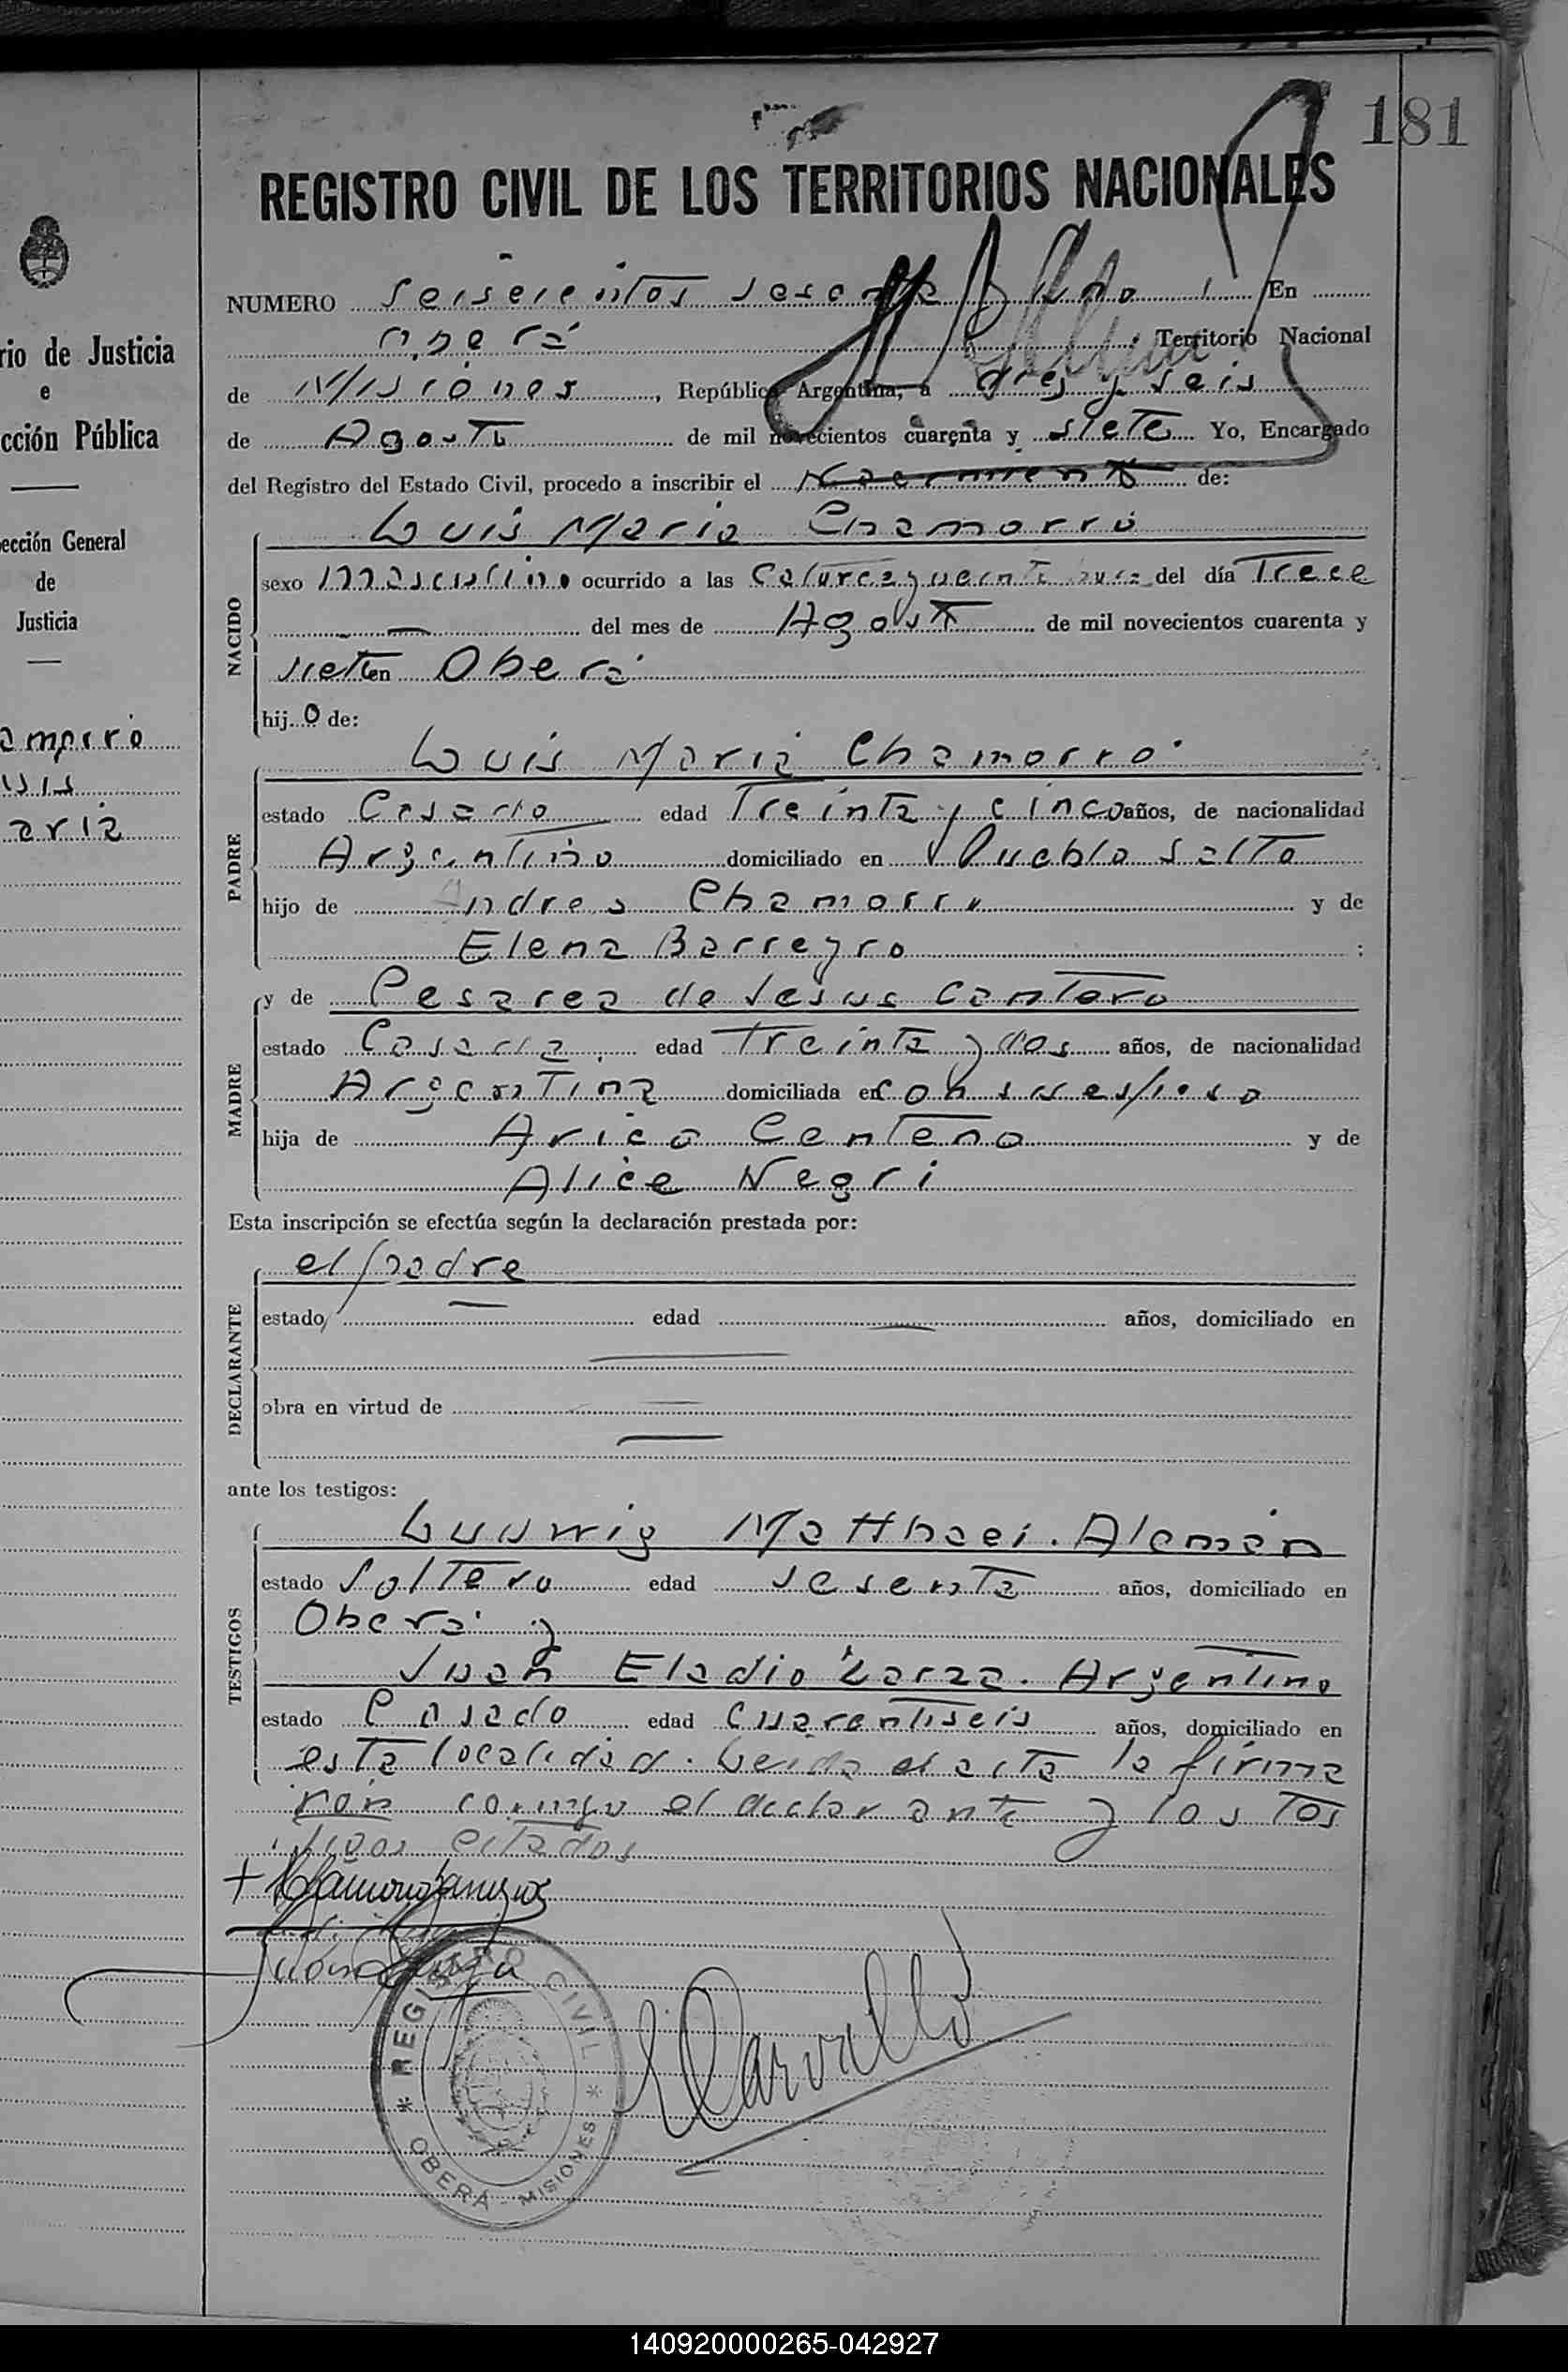 181
REGISTRO CIVIL DE LOS TERRITORIOS NACIONALES
NUMERO Seiscientos sesenta Uno En
Oberá Territorio Nacional
de Misiones, República Argentina, a diez y seis
de Agosto de mil novecientos cuarenta y siete Yo, Encargado
del Registro del Estado Civil, procedo a inscribir el Nacimiento de:
Luis Maria Chamorro
sexo masculino ocurrido a las Catorce y del día Trece
del mes de Agosto de mil novecientos cuarenta y
siete en Oberá
hijo de:
Luis Maria Chamorro
estado Casado edad Treinta y cinco años, de nacionalidad
Argentino domiciliado en Pueblo Salto
hijo de Andres Chamorro y de
Elena Barreyro ;
y de Cesarea de Jesus
estado Casada edad Treinta y dos años, de nacionalidad
Argentina domiciliada en con su esposo
hija de Centeno y de
Alice Negri
Esta inscripción se efectúa según la declaración prestada por:
el padre
estado edad años, domiciliado en
obra en virtud de
ante los testigos:
Ludwig Matthaei. Alemán
estado Soltero edad sesenta años, domiciliado en
Oberá y
Juan Eladio Zarza. Argentino
estado Casado edad Cuarentiseis años, domiciliado en
esta localidad. Leida el acta la firma
ron conmigo el declarante y los tes
tigos citados
NACIDO
PADRE
MADRE
DECLARANTE
TESTIGOS
Carvallo
REGISTRO CIVIL
* OBERÁ - MISIONES *
rio de Justicia
e
cción Pública
ección General
de
Justicia
amorro
uis
aria
140920000265-042927